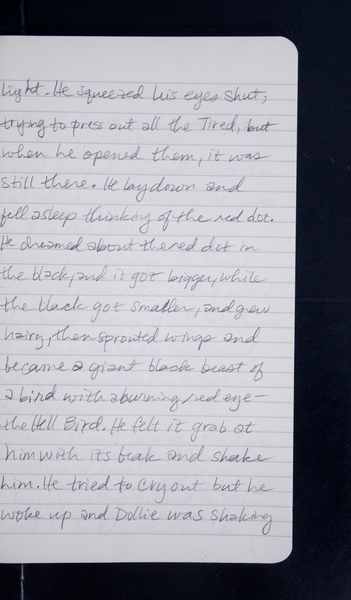 light. He squeezed his eyes shut,
trying to press out all the Tired, but
when he opened them, it was
still there. He lay down and
fell asleep thinking of the red dot.
He dreamed about the red dot in
the black, and it got bigger, while
the black got smaller, and grew
hairy, then sprouted wings and
became a giant black beast of
a bird with a burning red eye—
the Hell Bird. He felt it grab at
him with its beak and shake
him. He tried to cry out but he
woke up and Dollie was shaking